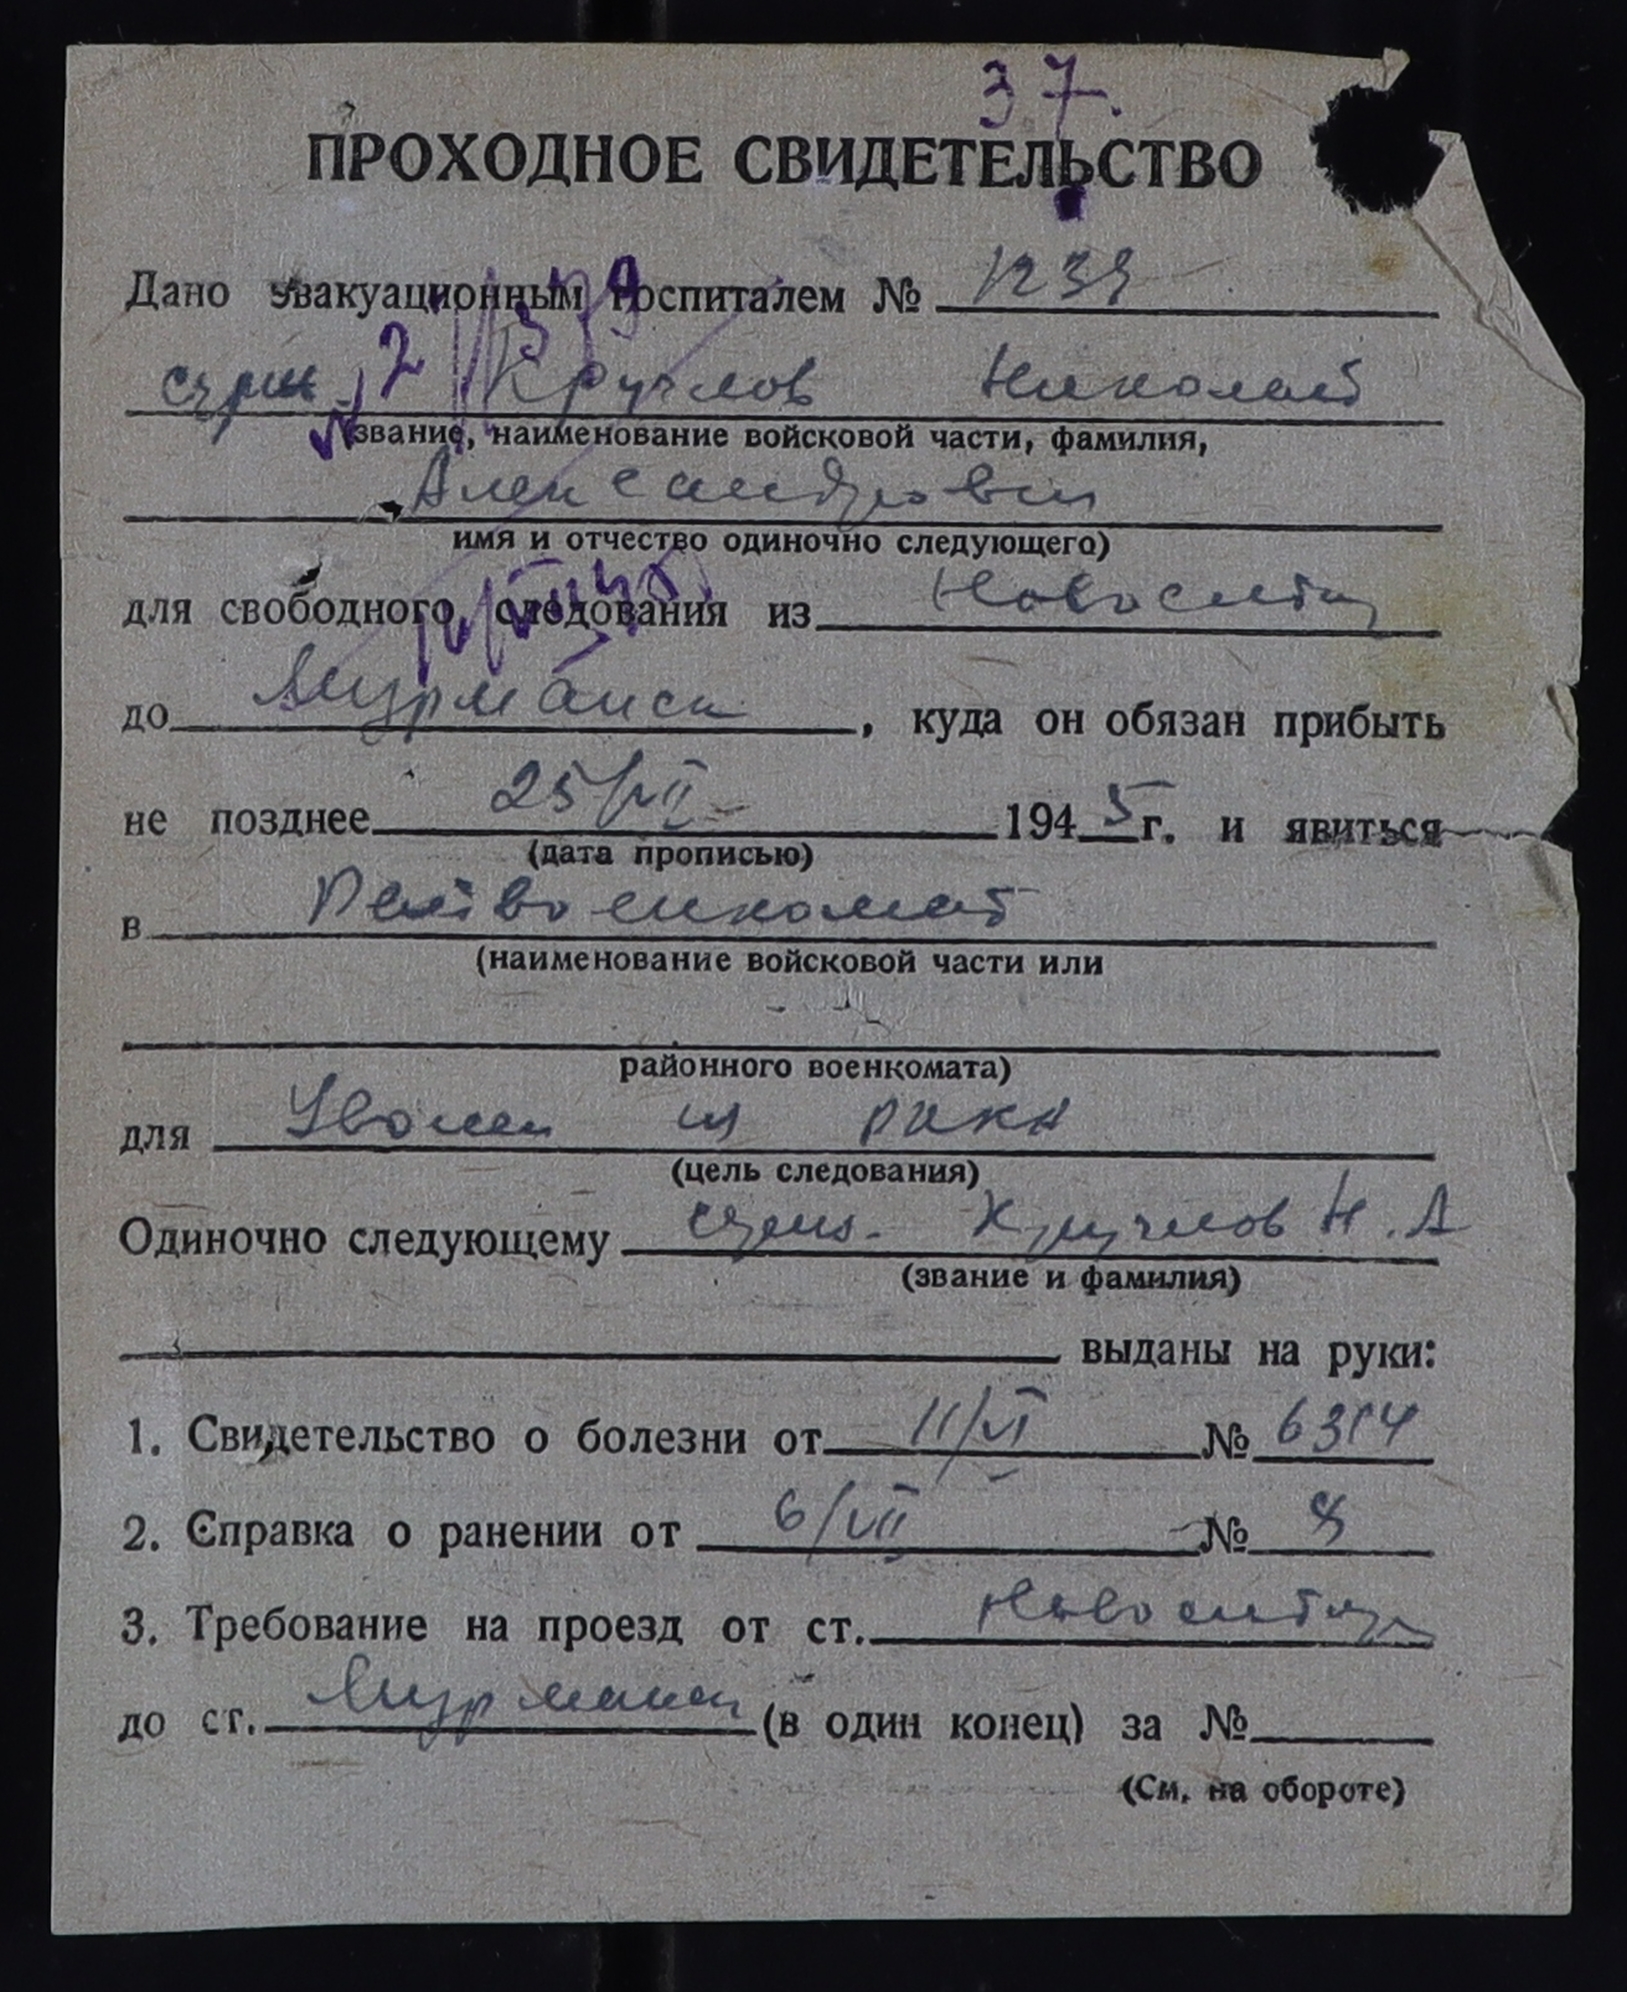 37.
ПРОХОДНОЕ СВИДЕТЕЛЬСТВО
Дано эвакуационным госпиталем № 1239
Круглов Николай
(звание, наименование войсковой части, фамилия,
Александрович
имя и отчество одиночно следующего)
для свободного следования из Новосиб
до Мурманск, куда он обязан прибыть
не позднее 25/VII 1945 г. и явиться
(дата прописью)
в Райвоенкомат
(наименование войсковой части или
районного военкомата)
для Уволен из РККА
(цель следования)
Одиночно следующему Круглов Н.А
(звание и фамилия)
выданы на руки:
1. Свидетельство о болезни от 11/VI № 6314
2. Справка о ранении от 6/VII № 8
3. Требование на проезд от ст. Новосиб
до ст. Мурманск (в один конец) за №
(См. на обороте)